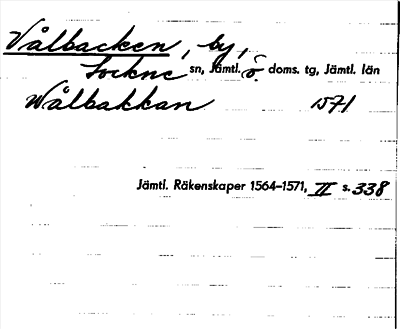 Vålbacken, by,
Lockne sn, Jämtl. ö. doms. tg, Jämtl. län
Wålbakkan 1571
Jämtl. Räkenskaper 1564–1571, II s. 338